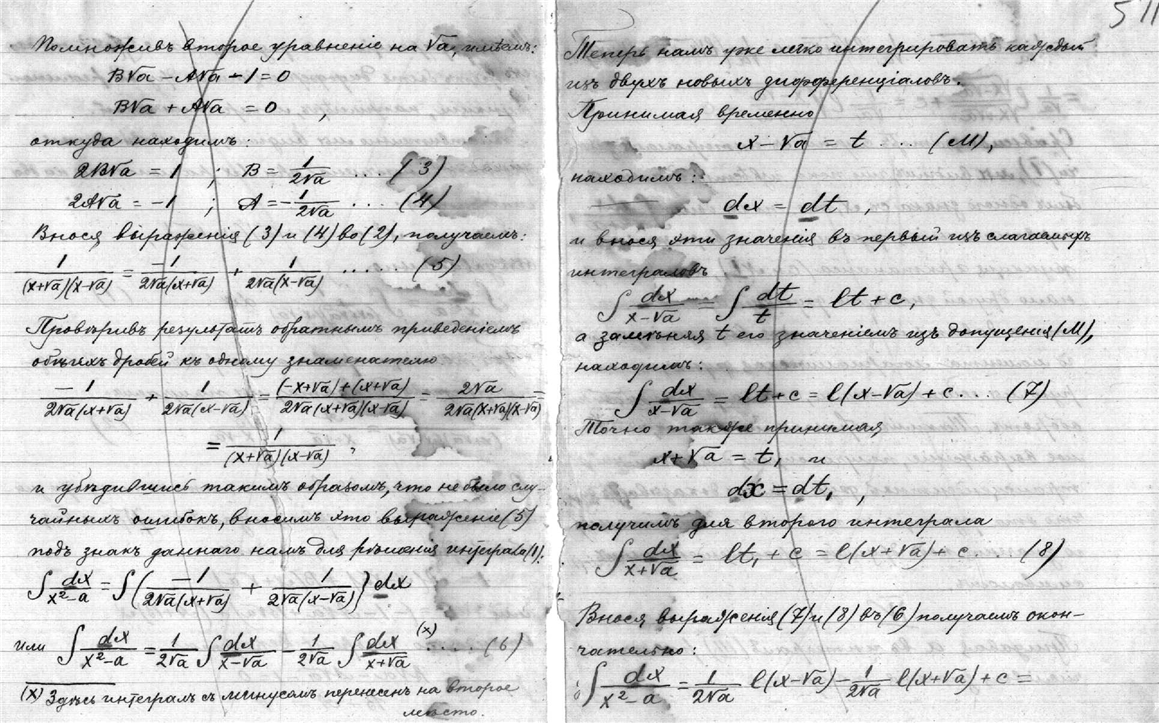 Помноживъ второе уравненіе на √a, имѣемъ:
B√a − A√a − 1 = 0
B√a + A√a = 0 ,
откуда находимъ:
2B√a = 1 ; B = 1/(2√a) ... (3)
2A√a = −1 ; A = −1/(2√a) ... (4)
Внося выраженія (3) и (4) во (2), получаемъ:
1/((x+√a)(x−√a)) = −1/(2√a(x+√a)) + 1/(2√a(x−√a)) ... (5)
Провѣривъ результатъ обратнымъ приведеніемъ
общихъ дробей къ одному знаменателю
−1/(2√a(x+√a)) + 1/(2√a(x−√a)) = ((−x+√a)+(x+√a))/(2√a(x+√a)(x−√a)) = 2√a/(2√a(x+√a)(x−√a)) =
= 1/((x+√a)(x−√a)) ,
и убѣдившись такимъ образомъ, что не было слу-
чайныхъ ошибокъ, вносимъ это выраженіе (5)
подъ знакъ даннаго намъ для рѣшенія интеграла (1).
∫ dx/(x²−a) = ∫ (−1/(2√a(x+√a)) + 1/(2√a(x−√a))) dx
или ∫ dx/(x²−a) = 1/(2√a) ∫ dx/(x−√a) − 1/(2√a) ∫ dx/(x+√a) (x) .... (6)
(x) Здѣсь интегралъ съ минусомъ перенесенъ на второе
мѣсто.
511
Теперь намъ уже легко интегрировать каждый
изъ двухъ новыхъ дифференціаловъ.
Принимая временно
x − √a = t ... (M),
находимъ:
dx = dt ,
и внося эти значенія въ первый изъ слагаемыхъ
интеграловъ
∫ dx/(x−√a) − ∫ dt/t = lt + c,
а замѣняя t его значеніемъ изъ допущенія (M),
находимъ:
∫ dx/(x−√a) = lt + c = l(x−√a) + c ... (7)
Точно также принимая
x + √a = t₁ и
dx = dt₁ ,
получимъ для второго интеграла
∫ dx/(x+√a) = lt₁ + c = l(x+√a) + c ... (8)
Внося выраженія (7) и (8) въ (6) получаемъ окон-
чательно:
∫ dx/(x²−a) = 1/(2√a) l(x−√a) − 1/(2√a) l(x+√a) + c =